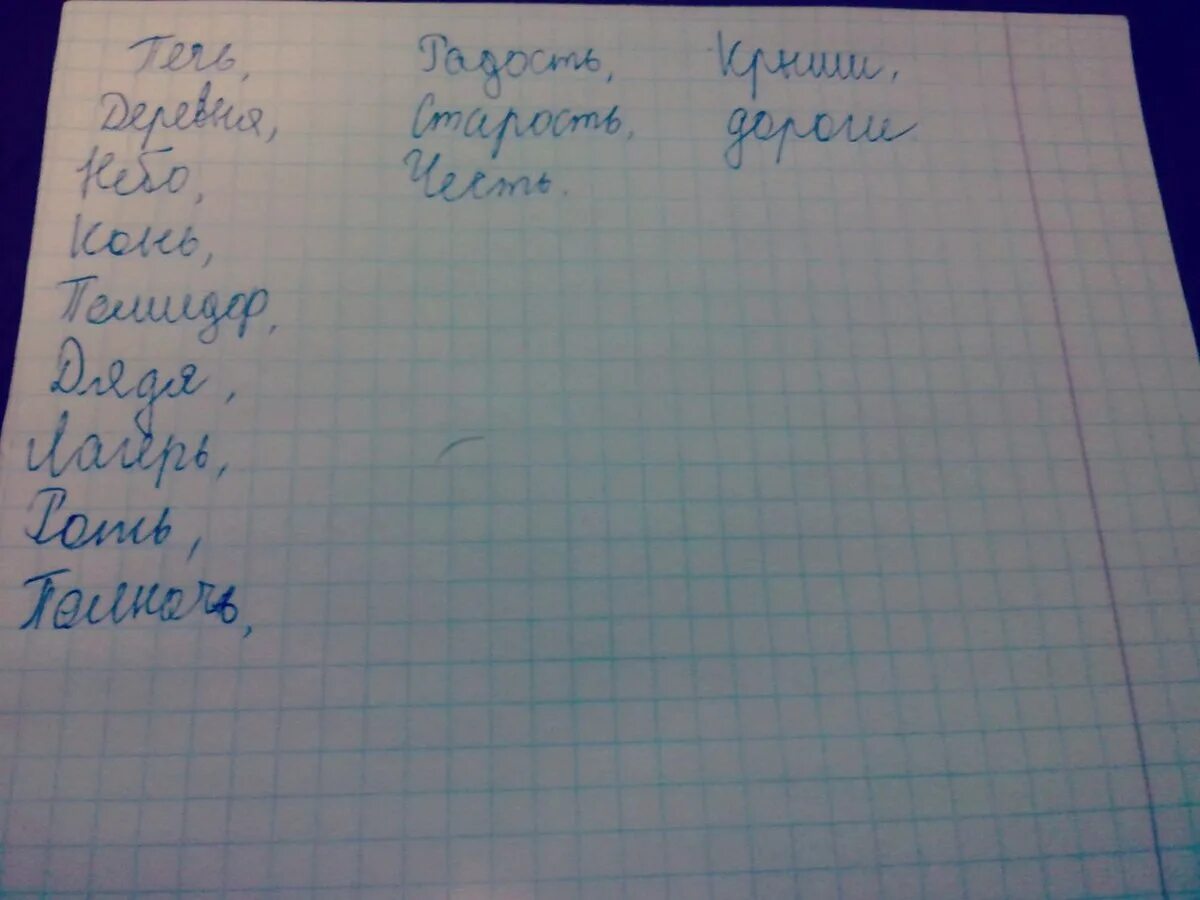 Печь,
Деревня,
Небо,
Конь,
Помидор,
Дядя,
Лагерь,
Рать,
Полночь,
Радость,
Старость,
Честь.
Крыши,
дороги